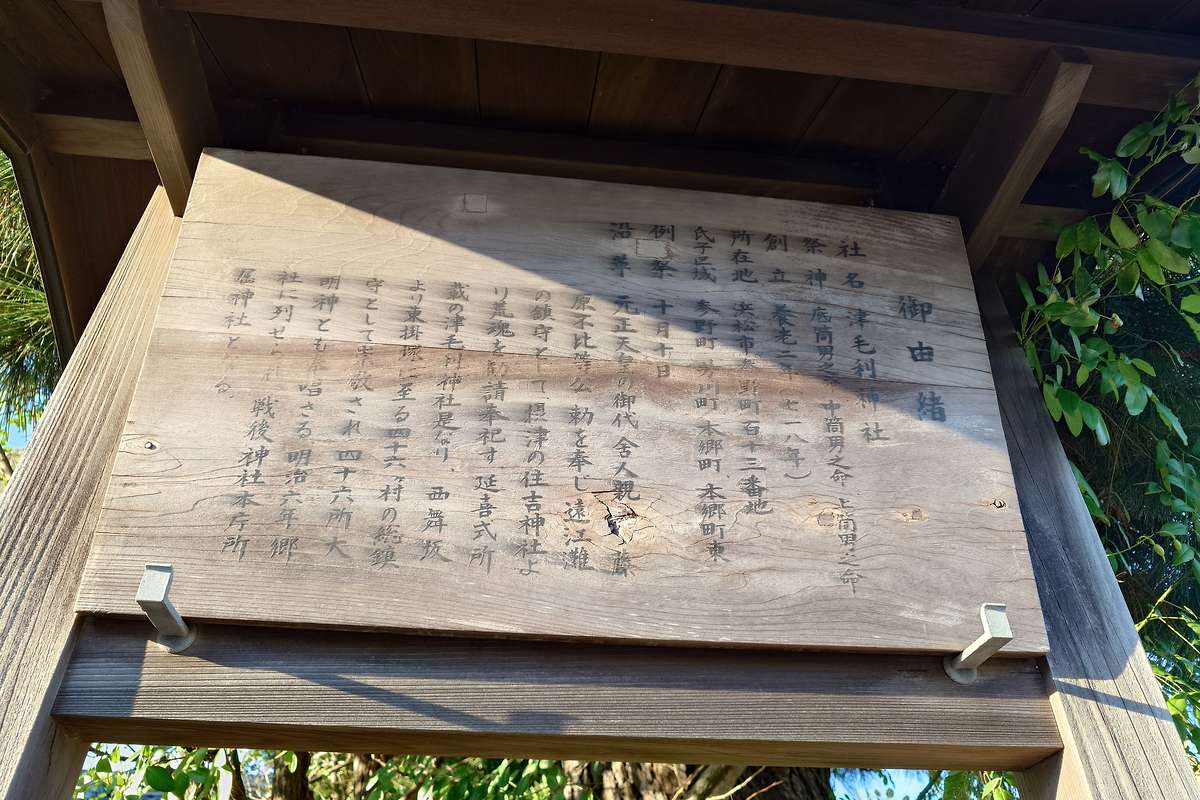 御由緒
社名 津毛利神社
祭神 底筒男之命 中筒男之命 上筒男之命
創立 養老二年(七一八年)
所在地 浜松市参野町百十三番地
氏子区域 参野町 芳川町 本郷町 本郷町東
例祭 十月十日
沿革 元正天皇の御代 舎人親王 藤
原不比等公 勅を奉じ遠江灘
の鎮守として 摂津の住吉神社よ
り荒魂を勧請奉祀す 延喜式所
載の津毛利神社是なり 西舞坂
より東掛塚に至る四十六ヶ村の総鎮
守として崇敬され四十六所大
明神とも 唱さる 明治六年郷
社に列せ 戦後神社本庁所
属神社と